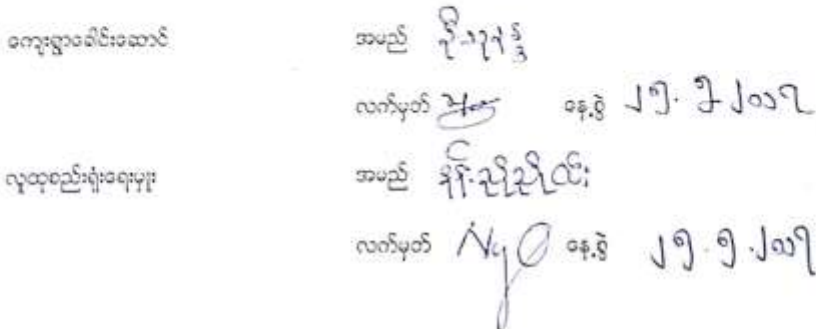 ကျေးရွာခေါင်းဆောင် အမည်
လက်မှတ် နေ့စွဲ ၂၅. ၅ ၂၀၁၇
လူထုစည်းရုံးရေးမှူး အမည် နန်းညိုညိုလင်း
လက်မှတ် နေ့စွဲ ၂၅.၅.၂၀၁၇